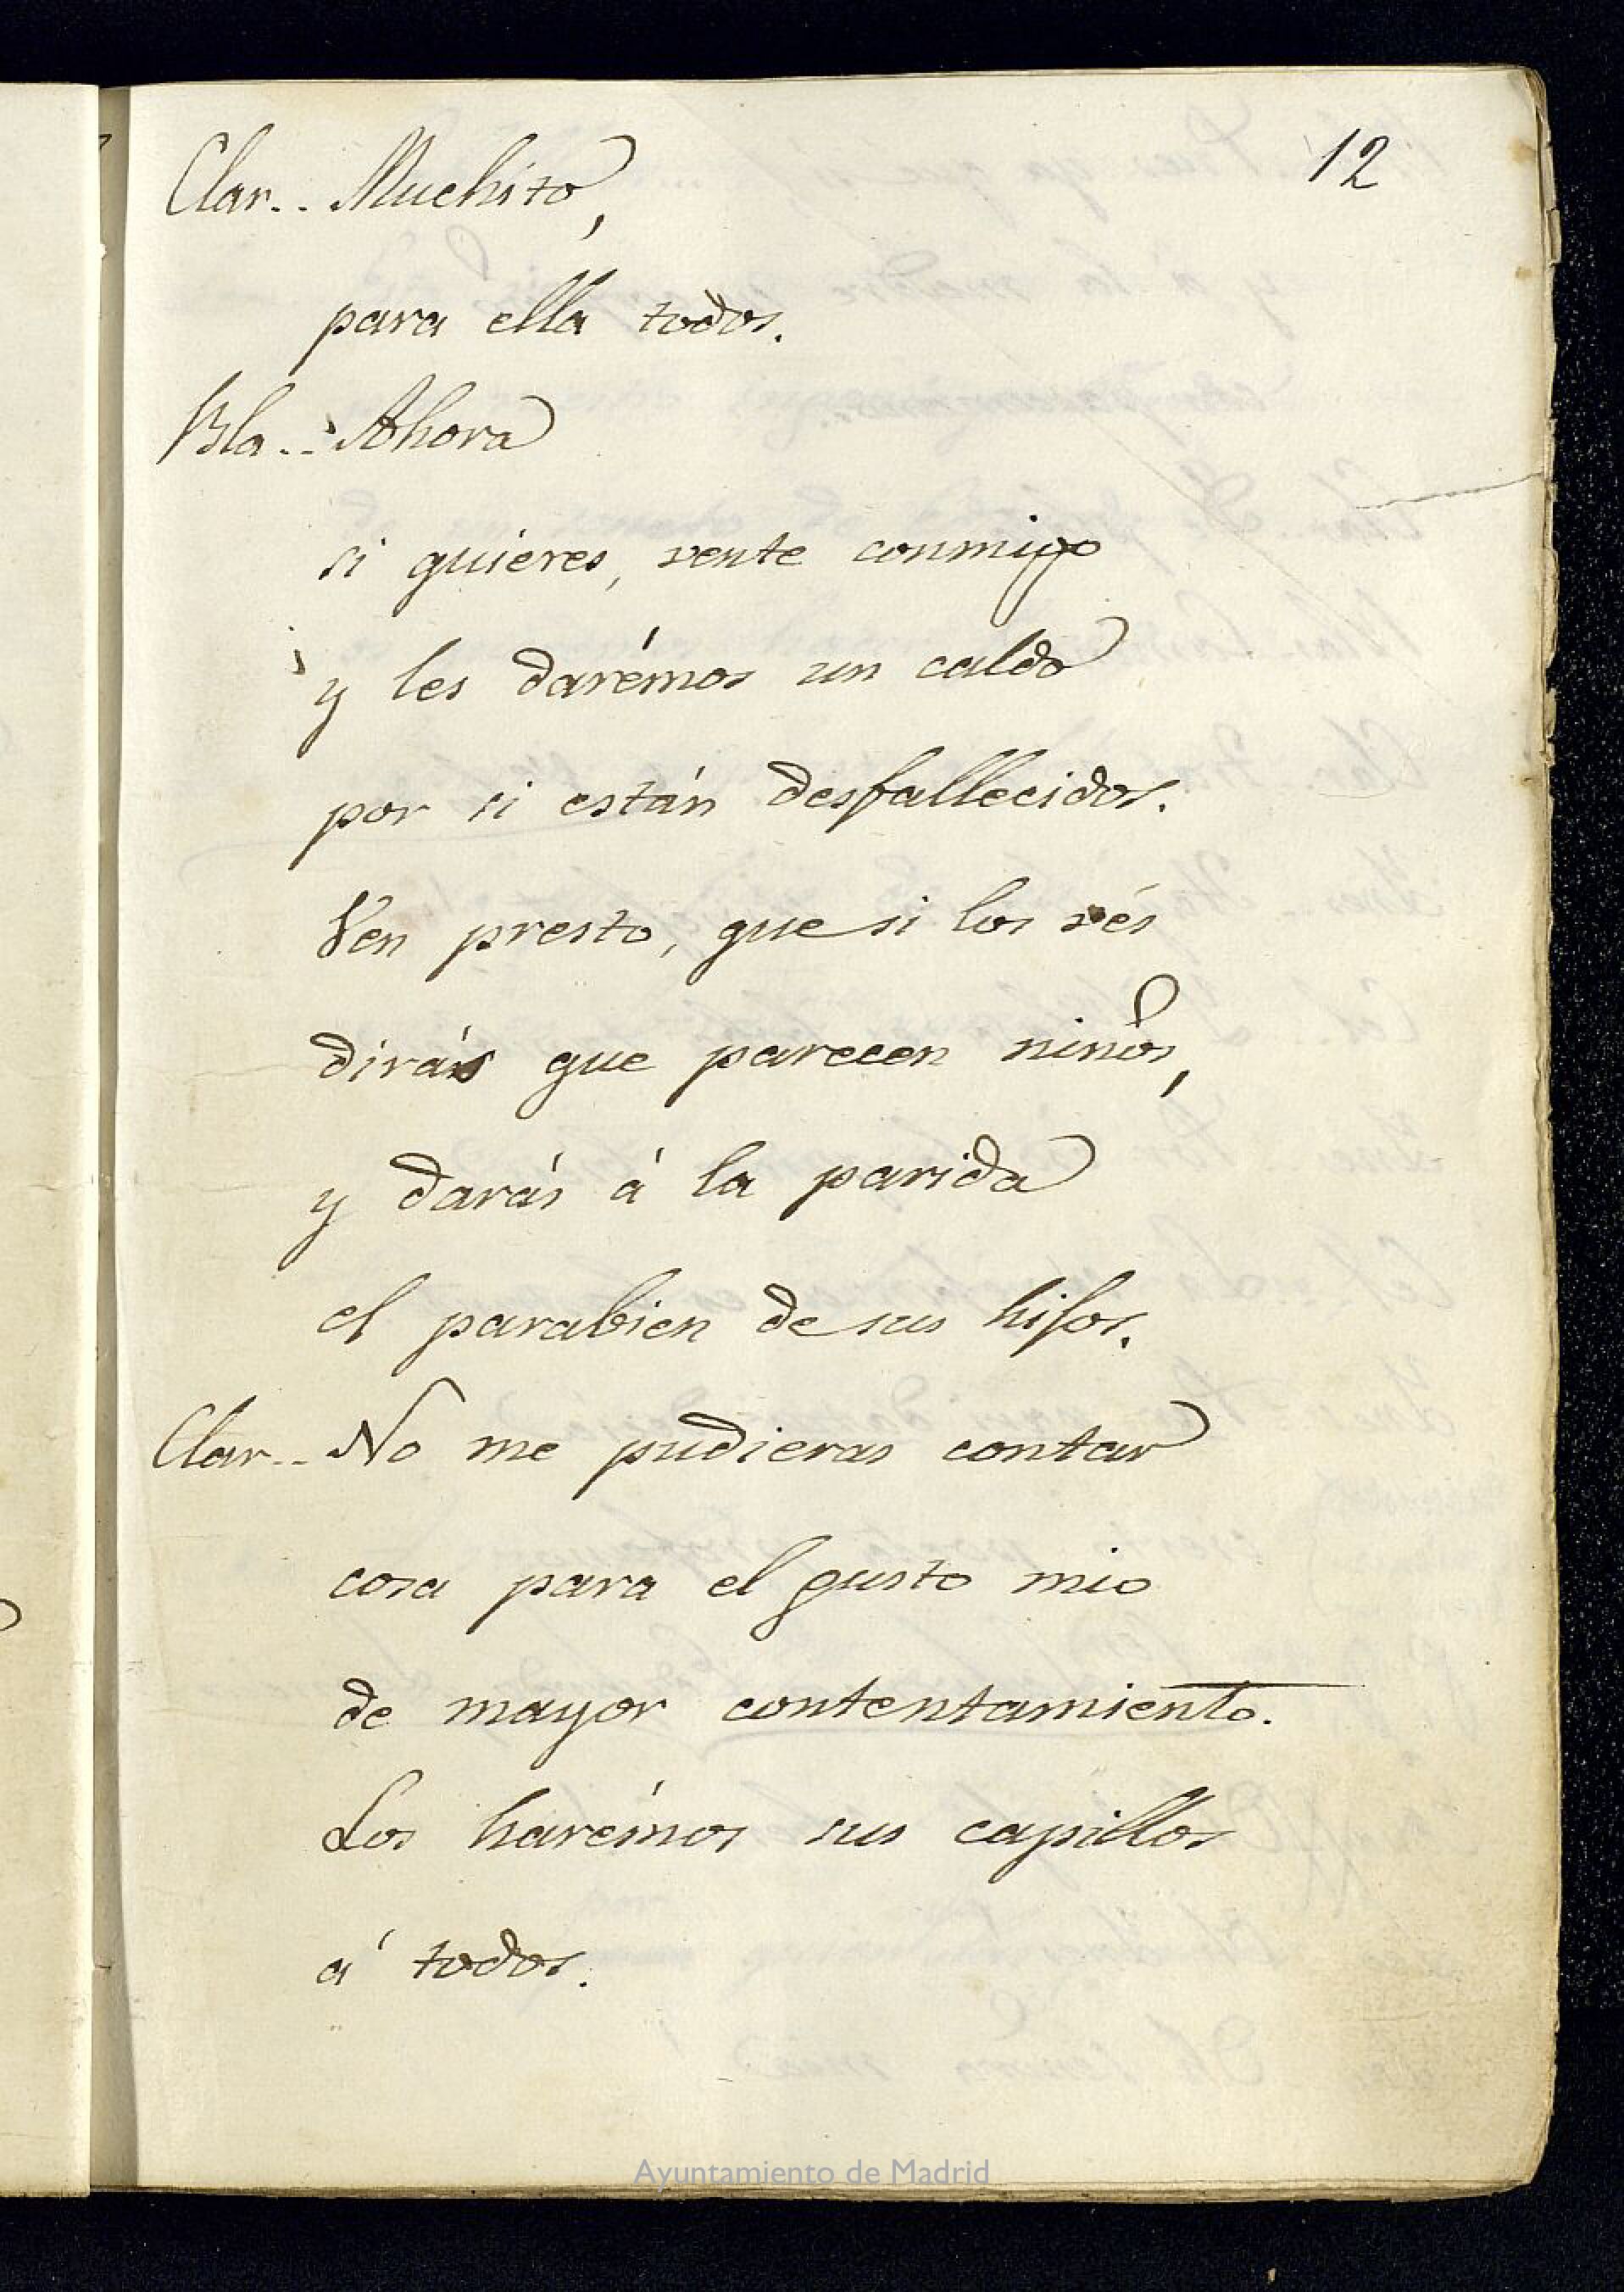 12
Clar.. Muchito,
para ella todos.
Bla.. Ahora
si quieres, vente conmigo
y les darémos un caldo
por si están desfallecidos.
Ven presto, que si los vés
dirás que parecen niños,
y darás á la parida
el parabien de sus hijos.
Clar.. No me pudieras contar
cosa para el gusto mio
de mayor contentamiento.
Los harémos sus capillos
á todos.
Ayuntamiento de Madrid